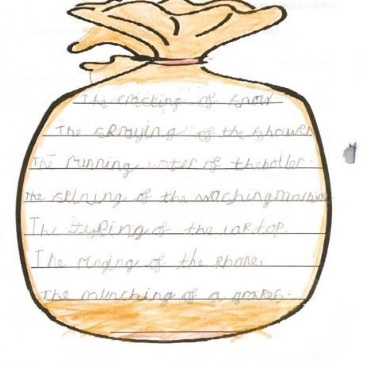 The cracking of snow
The skraying of the shower
The running water of theboiler.
The spining of the woshingmachine
The typing of the laptop.
The ringing of the phone.
The munching of a grapes.